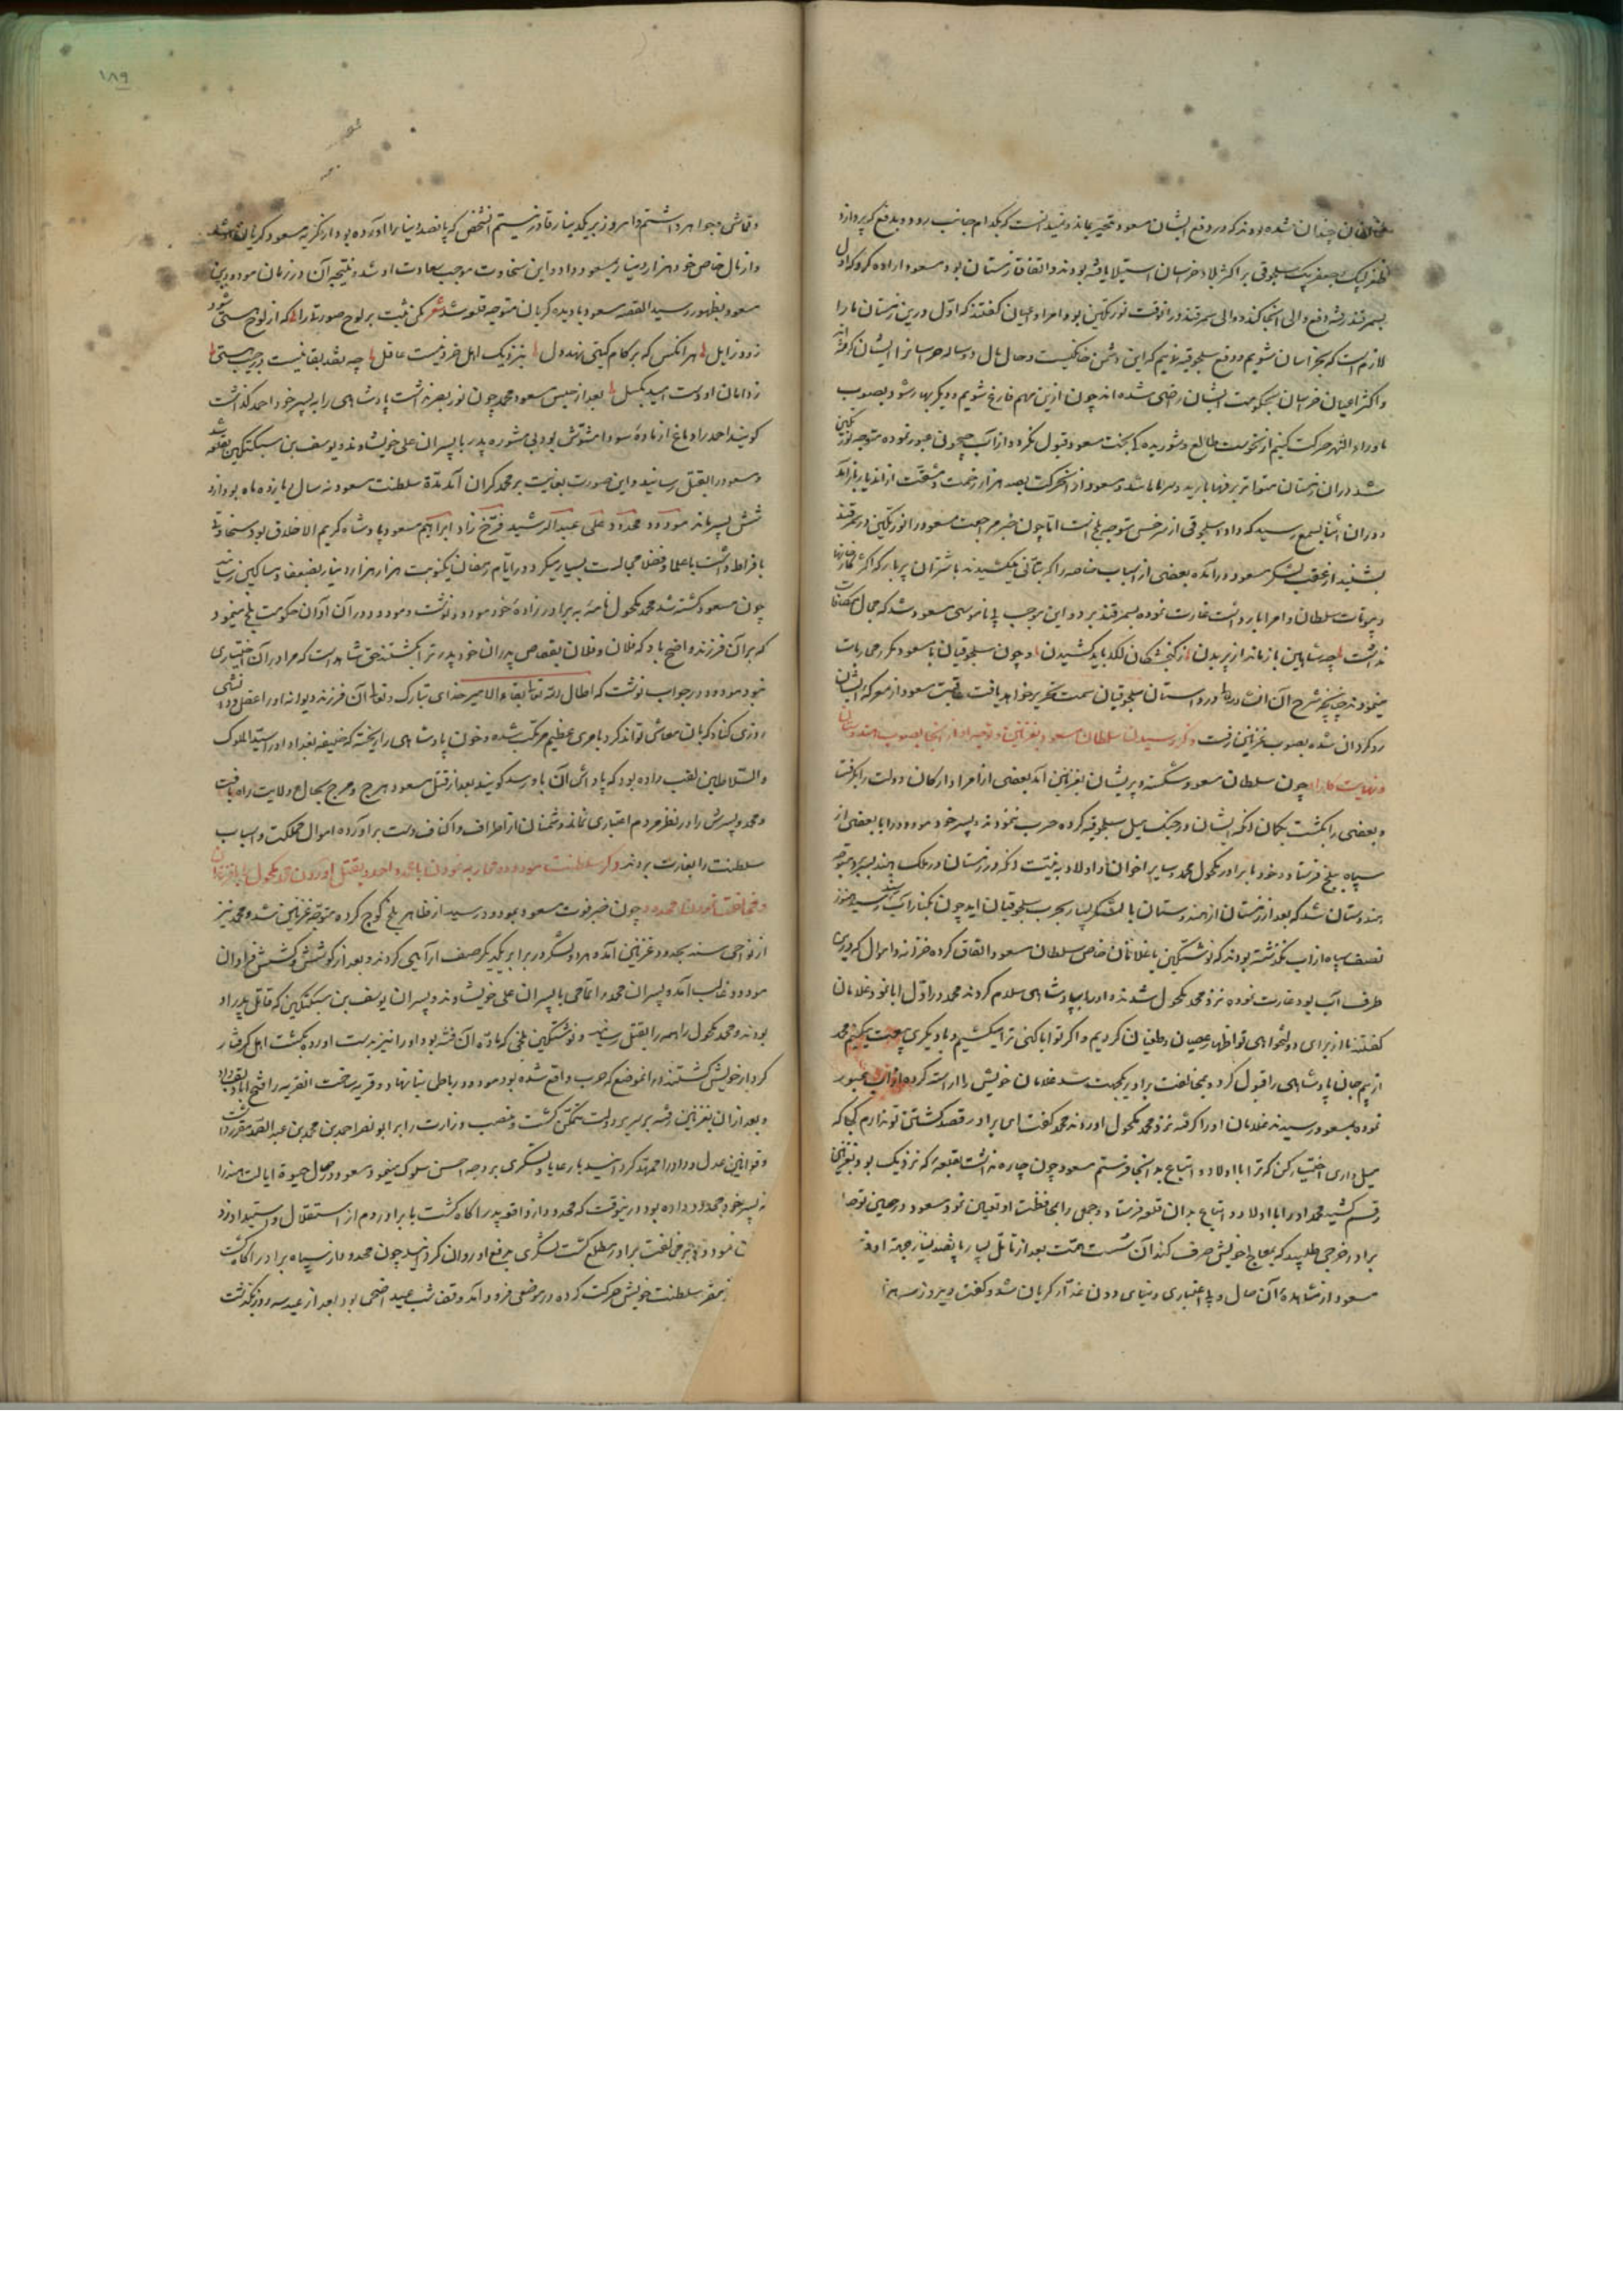 چندان شده بودند که در دفع ایشان مسعود متحیر بماند و نمیدانست که بکدام جانب رود و بدفع که پردازد
طغرلبیک و جعفر بیک سلجوقی بر اکثر بلاد خراسان استیلا یافته بودند و اتفاقا زمستان بود مسعود اراده کرد که اول
بسمرقند رفته دفع والی آنجا کند و والی سمرقند در آنوقت نورتکین بود امرا و اعیان گفتند که اول درین زمستان ما را
لازم است که بخراسان شویم و دفع سلجوقیه نماییم که این دشمن خانگیست و حال
و اکثر اعیان خراسان بحکومت ایشان راضی شده اند چون ازین مهم فارغ شویم و دیگر بهار شود بصوب
ماوراء النهر حرکت کنیم از نحوست طالع و شوریده گی بخت مسعود قبول نکرد و از آب جیحون عبور نموده متوجه نورتکین
شد در آن زمستان متواتر برفها بارید و سرماها شد و مسعود از آن حرکت بصد هزار زحمت و مشقت از آن دیار باز آمد
در آن اثنا بسمع رسید که داود سلجوقی از سرخس متوجه بلخ است اما چون خبر مراجعت مسعود را نورتکین در سمرقند
بشنید از عقب لشکر مسعود در آمده بعضی از اسباب خاصه را که بتأنی میکشیدند با شتران پر بار که اکثر
و بیوتات سلطان و امرا بار داشت غارت نموده بسمرقند برد و این موجب بی ناموسی مسعود شد که مجال مکافات
نداشت چه شاهین باز ماند از پریدن ز گنجشکان لگد باید کشیدن و چون سلجوقیان با مسعود مکرر محاربات
مینمودند چنانچه شرح آن در داستان سلجوقیان سمت تحریر خواهد یافت عاقبت مسعود از معرکه ایشان
رو گردان شده بصوب غزنین رفت ذکر رسیدن سلطان مسعود بغزنین و توجه او از آنجا بصوب هندوستان
و نهایت کار او چون سلطان مسعود شکسته و پریشان بغزنین آمد بعضی از امرا و ارکان دولت را بگرفت
و بعضی را بکشت بگمان آنکه ایشان در جنگ میل سلجوقیه کرده حرب ننمودند و پسر خود مودود را با بعضی از
سپاه ببلخ فرستاد و خود با برادر مکحول محمد و سایر اخوان و اولاد به نیت آنکه در زمستان در ملک هند بسر برد متوجه
هندوستان شد که بعد از زمستان از هندوستان با لشکر بسیار بحرب سلجوقیان آید چون بکنار آب سند رسید هنوز
نصف سپاه از آب نگذشته بودند که نوشتکین با غلامان خاص سلطان مسعود اتفاق کرده خزانه و اموال که درین
طرف آب بود غارت نموده نزد محمد مکحول شدند و او را بپادشاهی سلام کردند محمد در اول ابا نمود غلامان
گفتند ما از برای دولتخواهی تو اظهار عصیان و طغیان کردیم و اگر تو ابا کنی ترا میکشیم و با دیگری بیعت میکنیم محمد
از بیم جان پادشاهی را قبول کرد و بمخالفت برادر یکجهت شد غلامان خویش را آراسته کرده از آب عبور
نموده بمسعود رسیدند غلامان او را گرفته نزد محمد مکحول آوردند محمد گفت ای برادر قصد کشتن تو ندارم کجا که
میل داری اختیار کن که ترا با اولاد و اتباع بدانجا فرستم مسعود چون چاره نداشت بقلعه که نزدیک بود بغزنین
رقم کشید محمد او را با اولاد و اتباع بدان قلعه فرستاد و جمعی را بمحافظت او تعیین نمود مسعود در حین توجه از
برادر خرجی طلبید که بمعاج خویش صرف کند آن سست همت بعد از تأمل بسیار پانصد دینار جهة او فر
مسعود از مشاهده آن حال و بی اعتباری دنیای دون غدار گریان شد و گفت دیروز سه هزار
۱۸۹
و قماش و جواهر داشتم و امروز بر یکدینار قادر نیستم آنشخص که پانصد دینار را آورده بود از تکریه مسعود گریان شد
و از مال خاص خود هزار دینار بمسعود داد و این سخاوت موجب سعادت او شد و نتیجه آن در زمان مودود بن
مسعود بظهور رسید القصه مسعود با دیده گریان متوجه قلعه شد شعر مکن ثبت بر لوح صورت را که از لوح هستی شود
زود زایل هر آنکس که بر کام گیتی نهد دل بنزدیک اهل خرد نیست عاقل چه نقد بقا نیست در جیب هستی
ز دامان او دست امید بگسل بعد از حبس مسعود محمد چون نور بصر نداشت پادشاهی را به پسر خود احمد گذاشت
گویند احمد را دماغ از ماده سودا مشوش بود بی مشوره پدر با پسران علی خویشاوند و یوسف بن سبکتکین بقلعه شد
و مسعود را بقتل رسانید و این صورت بغایت بر محمد گران آمد مدة سلطنت مسعود نه سال و یازده ماه بود از او
شش پسر ماند مودود مجدود علی عبد الرشید فرخ زاد ابراهیم مسعود پادشاه کریم الاخلاق بود سخاوتی
بافراط داشت با علما و فضلا مجالست بسیار میکرد در ایام رمضان یکنوبت هزار هزار دینار بضعفا و مساکین رسانید
چون مسعود کشته شد محمد مکحول نامه به برادر زاده خود مودود نوشت و مودود در آن آوان حکومت بلخ مینمود
که بر آن فرزند واضح باد که فلان و فلان بقصاص پدران خود پدر ترا بکشتند حق شاهد است که مرا در آن اختیاری
نبود مودود در جواب نوشت که اطال الله تعالی بقاء الامیر خدای تبارک و تعالی آن فرزند دیوانه او را عقل و دانشی
روزی کناد که بان معاش تواند کرد بامری عظیم مرتکب شده و خون پادشاهی را ریخته که خلیفه بغداد او را سید الملوک
والسلاطین لقب داده بود که پاداش آن باو رسد گویند بعد از قتل مسعود هرج و مرج بحال ولایت راه یافت
و محمد و پسرش را در نظر مردم اعتباری نماند و دشمنان از اطراف و اکناف دست برآورده اموال مملکت و اسباب
سلطنت را بغارت بردند ذکر سلطنت مودود و محاربه نمودن با عم و احمد و بقتل آوردن محمد مکحول
و مخالفت نمودن مجدود چون خبر فوت مسعود بمودود رسید از ظاهر بلخ کوچ کرده متوجه غزنین شد و محمد نیز
از نواحی سند بحدود غزنین آمد و هر دو لشکر در برابر یکدیگر صف آرایی کردند و بعد از کوشش و کشش فراوان
مودود غالب آمد و پسران محمد را تمامی با پسران علی خویشاوند و پسران یوسف بن سبکتکین که قاتل پدر او
بودند و محمد مکحول را همه را بقتل رسانید و نوشتکین بلخی که ماده آن فتنه بود او را نیز بدست آورده بکشت اهل
کردار خویش گشتند در آنموضع که حرب واقع شده بود مودود رباطی بنا نهاد و قریه ساخت آنقریه را فتح آباد لقب داد
و بعد از آن بغزنین رفته بر سریر دولت متمکن گشت و منصب وزارت را بر ابو نصر احمد بن محمد بن عبد الصمد مقرر داشت
و قوانین عدل و داد را ممهد گردانید با رعایا و لشکری بر وجه احسن سلوک مینمود مسعود در حال حیوة ایالت هند را
به پسر خود مجدود داده بود درینوقت که مجدود از واقعه پدر آگاه گشت با برادر دم از استقلال و استبداد زد
نمود و بر مخالفت برادر مطلع گشت لشکری بدفع او روان گردانید چون مجدود از سپاه برادر آگاه گشت
مقر سلطنت خویش حرکت کرده در موضعی فرود آمد و قضا شب عید اضحی بود بعد از عید سه روز بگذشت